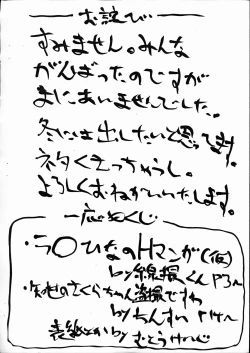 お詫び
すみません。みんな
がんばったのですが
まにあいませんでした。
冬には出したいと思ってます。
ネタくえっちゅうし。
よろしくおねがいいたします。
一応もくじ
・ラ〇ひなのHマンガ(仮)
by 線撮くん P3〜
・知世のさくらちゃん盗撮ですわ
by ちんすい P17〜
表紙とか by むとうけーじ